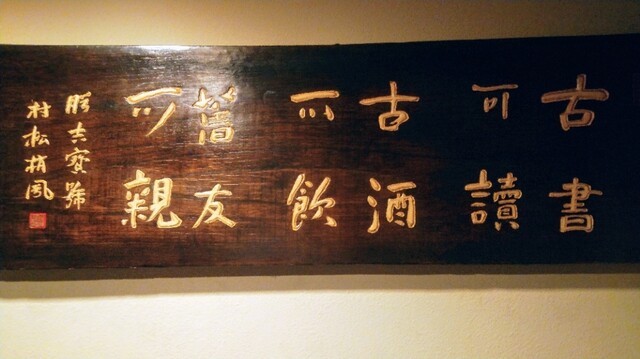 古書
可讀
古酒
可飲
舊友
可親
勝吉寶號
村松梢風